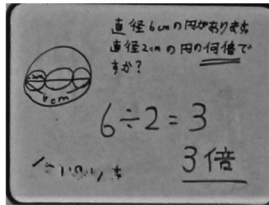 直径6cmの円があります。
直径2cmの円の何倍で
すか？
6cm
6÷2=3
3倍